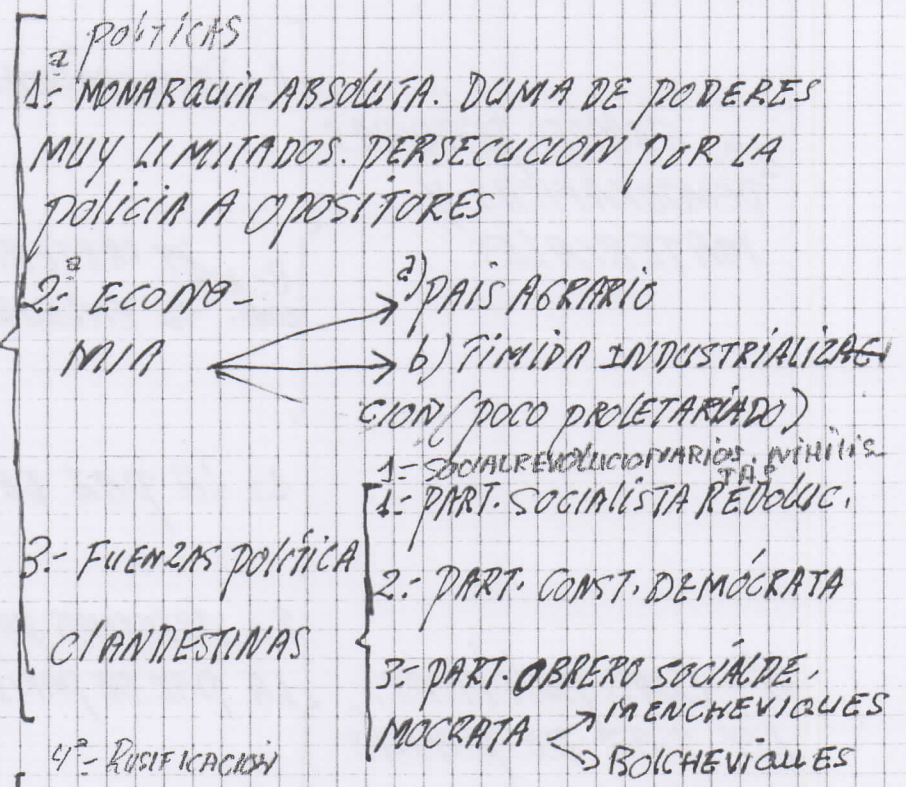 POLÍTICAS
1ª- MONARQUIA ABSOLUTA. DUMA DE PODERES
MUY LIMITADOS. PERSECUCION POR LA
POLICIA A OPOSITORES
2ª- ECONO-
MIA
a) PAIS AGRARIO
b) TIMIDA INDUSTRIALIZA
CION (POCO PROLETARIADO)
3- FUERZAS POLITICA
CLANDESTINAS
1- SOCIALREVOLUCIONARIOS. NIHILIS
TAS
1- PART. SOCIALISTA REVOLUC.
2- PART. CONST. DEMÓCRATA
3- PART. OBRERO SOCIALDE.
MOCRATA
MENCHEVIQUES
BOLCHEVIQUES
4ª- RUSIFICACION